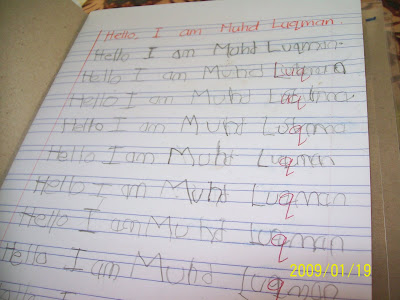 Hello, I am Muhd Luqman.
Hello I am Muhd Luqman.
Hello I am Muhd Luqman
Hello I am Muhd Luqman.
Hello I am Muhd Luqman
Hello I am Muhd Luqman
Hello I am Muhd Luqman
Hello I am Muhd Luqman
Hello I am Muhd Luqman
2009/01/19